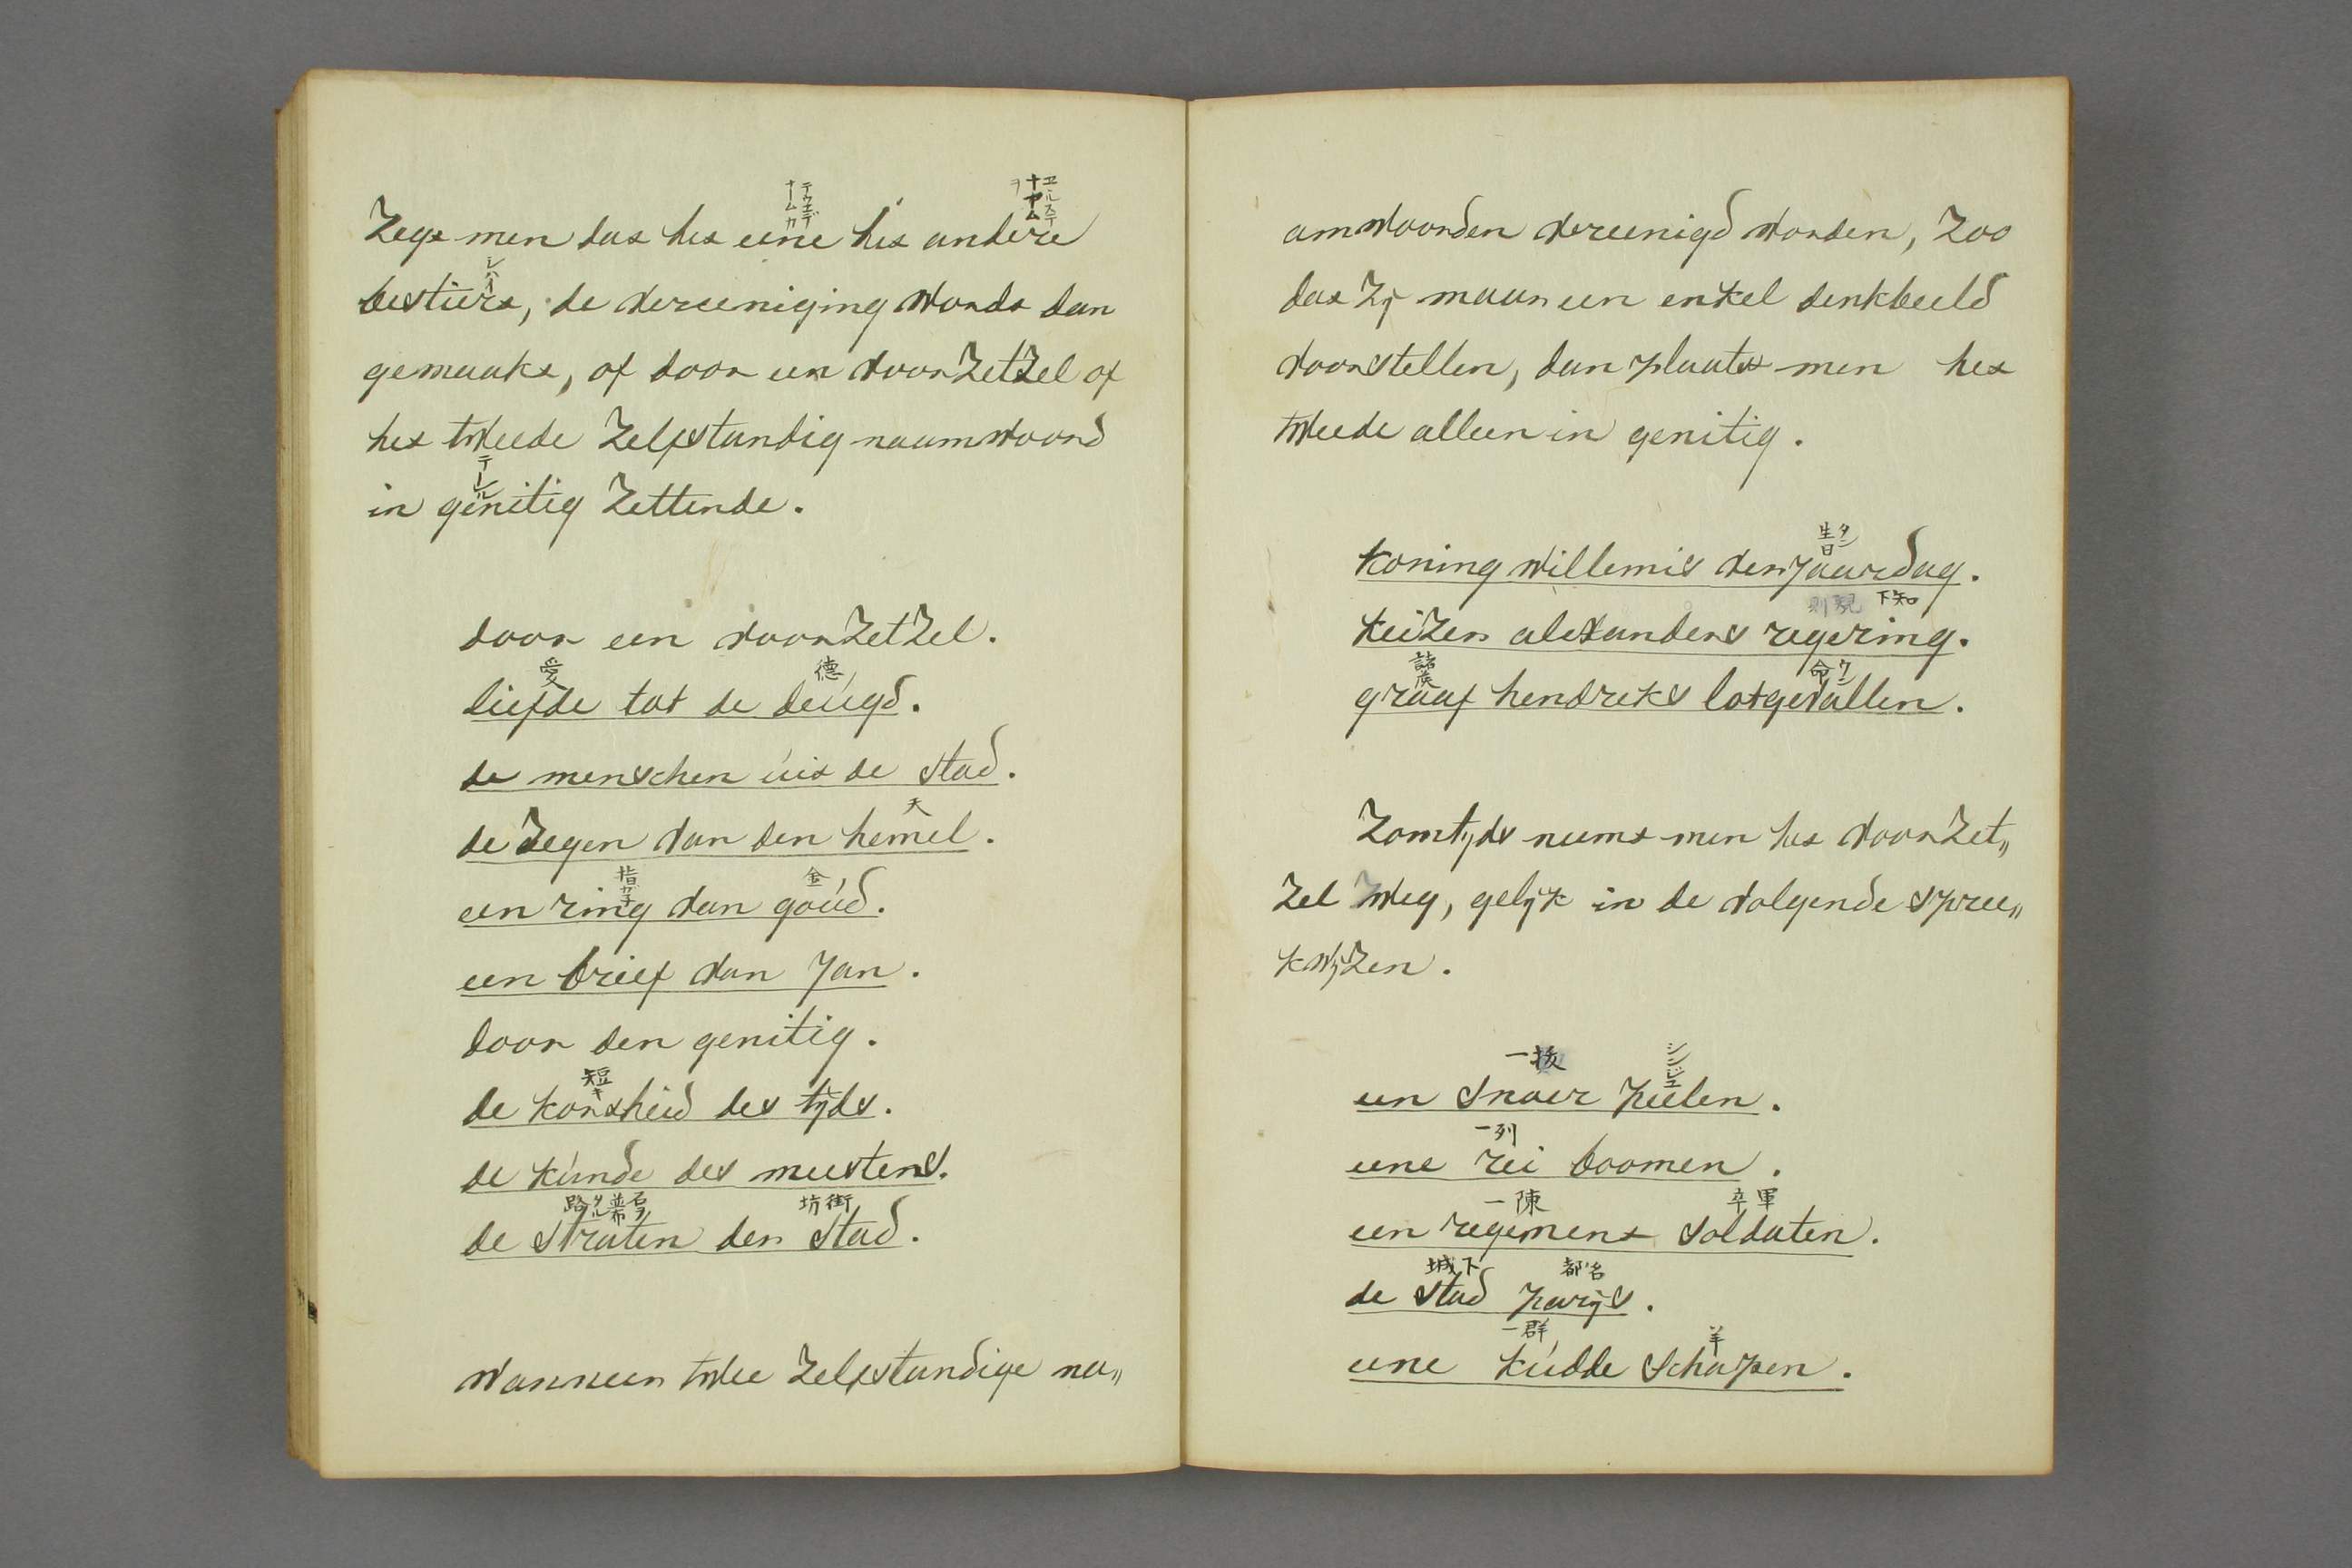 Zegt men dat het eene het andere
bestiert, de vereeniging wordt dan
gemaakt, of door een voorzetzel of
het tweede Zelfstandig naamwoord
in genitig Zettende.
door een voorzetzel.
愛 德
liefde tot de deúgd.
de menschen úit de stad.
天
de Zegen van den hemel.
金
een ring van goúd.
een brief van Jan.
door den genitig.
短キ
de kortheid des tijds.
de kúnde des meesters.
街坊
de straten der stad.
Wanneer twee Zelfstandige na„
amwoorden vereenigd worden, Zoo
dat Zij maar een enkel denkbeeld
voorstellen, dan plaatst men het
tweede alleen in genitig.
koning Willemis verjaardag.
下知
keizer alexanders regering.
諸侯
graaf hendreks lotgevallen.
Zomtijds neemt men het voorzet„
zel weg, gelijk in de volgende spree„
kwijzen.
een snoer peelen.
一列
eene rei boomen.
一陳 軍卒
een regiment soldaten.
城下 名都
de stad parijs.
一群 羊
eene kúdde schapen.